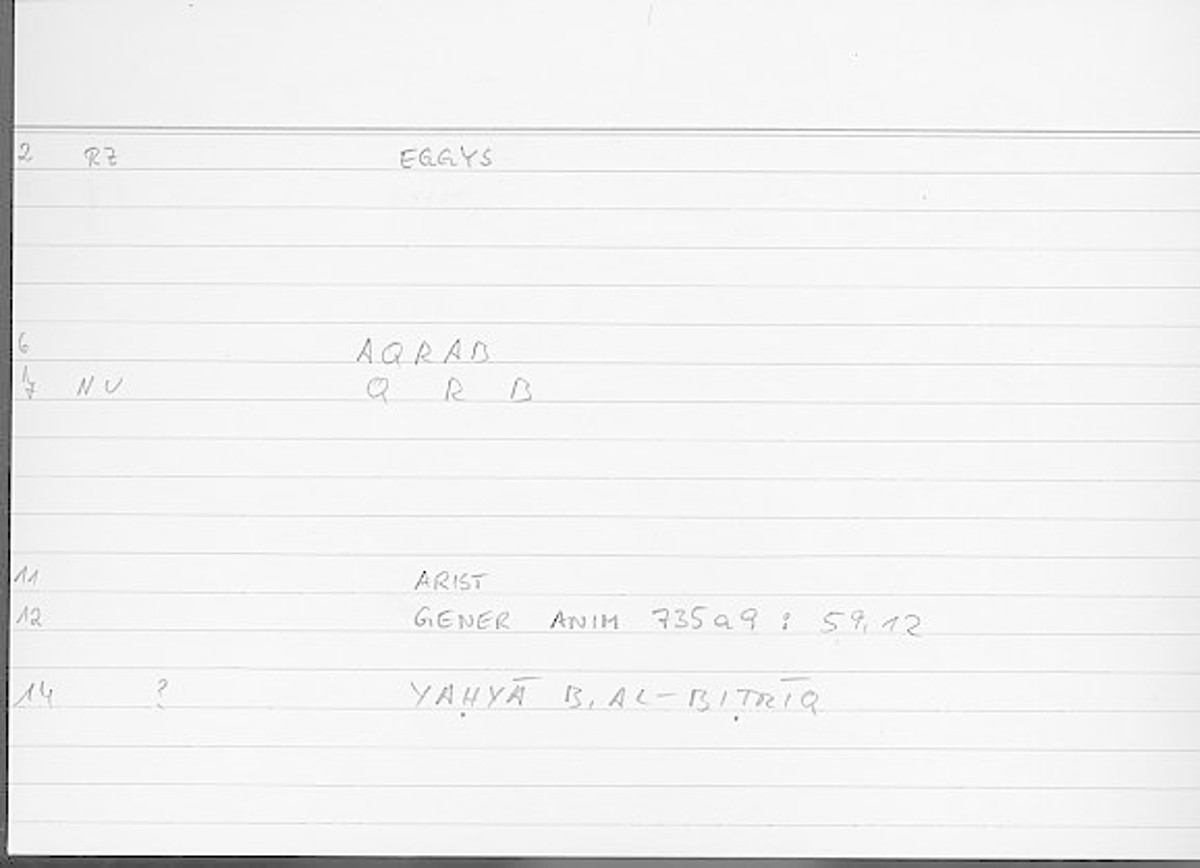 2 RZ EGGYS
6 AQRAB
7 NU Q R B
11 ARIST
12 GENER ANIM 735a9 : 59,12
14 ? YAḤYĀ B. AL-BIṬRĪQ